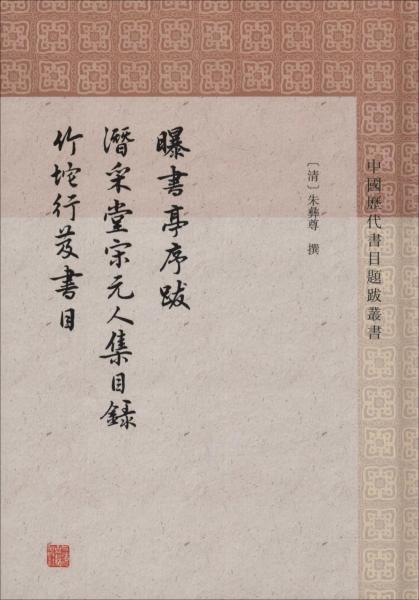 中國歷代書目題跋叢書
〔清〕朱彝尊 撰
曝書亭序跋
潛采堂宋元人集目録
竹垞行笈書目